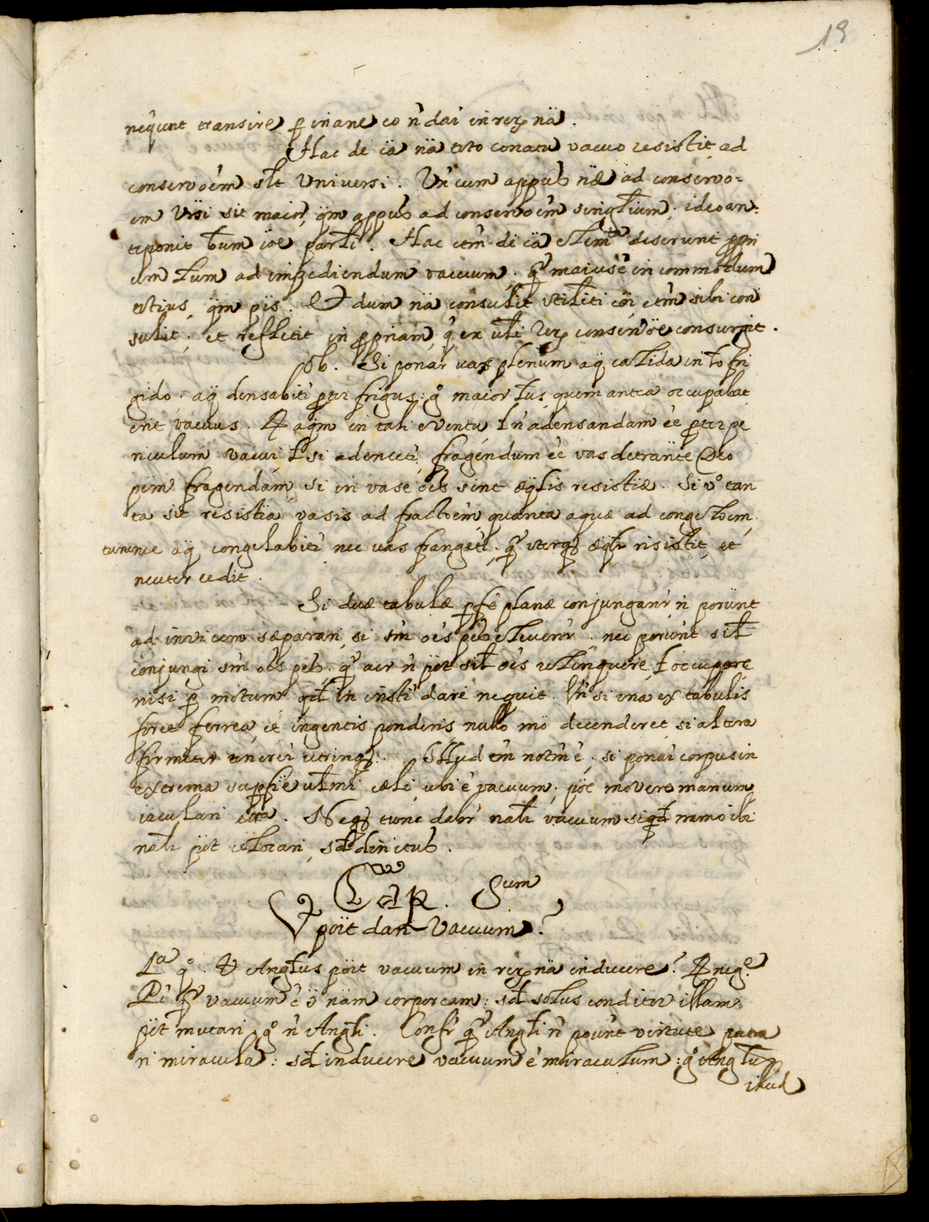 19
nequnt transire p inane eo ñ dai in rerz nä.
Hac de cä nä toto conatu vacuo resistit ad
conservoem slt Universi. Un cum appuls næ ad conservo-
em Uñsi sit maior, qm appuls ad conservoem singlium, ideo an-
teponit bum ioe parti. Hac etm di cä deserunt ppri
um lum ad impediendum vacuum. q maius è in commodum
istius, qm pis. Et dum nä consulit utiliti coi etm sibi con
sulit, et reflectit in ppriam, q ex uli rerz conservoe consurgit.
Ob. Si ponar vas plenum aq calida in lo fri
gido aq densabit ppter frigus: g maior lus quem antea occupabat
erit vacuus. R aqm in tali eventu ñ adensandam èe ppter pe
riculum vacui l si adencet, fragendum èe vas
pem fragendam, si in vase oes sint æqles resistiæ. Si vo tan
ta sit resistia vasis ad fractoem, quanta aquæ ad congeloem,
tunc nec aq congelabit nec vas franget. q uterq æqlr risistit, et
neuter cedit.
Si duæ tabulæ pfe planæ conjunganr ñ porunt
ad invicem separari, si sm oes ptes elevenr. nec porunt sil
conjungi sm oes ptes. q aer ñ pot sil oes relinquere l occupare
nisi p motum qd in insti dare nequit. Un si una ex tabulis
foret ferrea, et ingentis ponderis nullo mo decenderet, si altera
firmiter teneret utrinq. Illud tm notm è, si ponai corpus in
externa supfie ultmi cæli, ubi è vacuum, pot movere manum
iaculari etta. Neq tunc dabr nali vacuum siqd nimo ibi
nali pot colocari, sd dinitus.
Cap. 8um
Q poit dari Vacuum?
1a q. U Anglus poit vacuum in rerz nä inducere? R neg.e
Pi q vacuum è o näm corpoream: sd solus conditor illam
pot mutari, g ñ Angli. Confr q Angli ñ pount virtute
ñ miracula: sd inducere vacuum è miraculum: g Anglus
illud